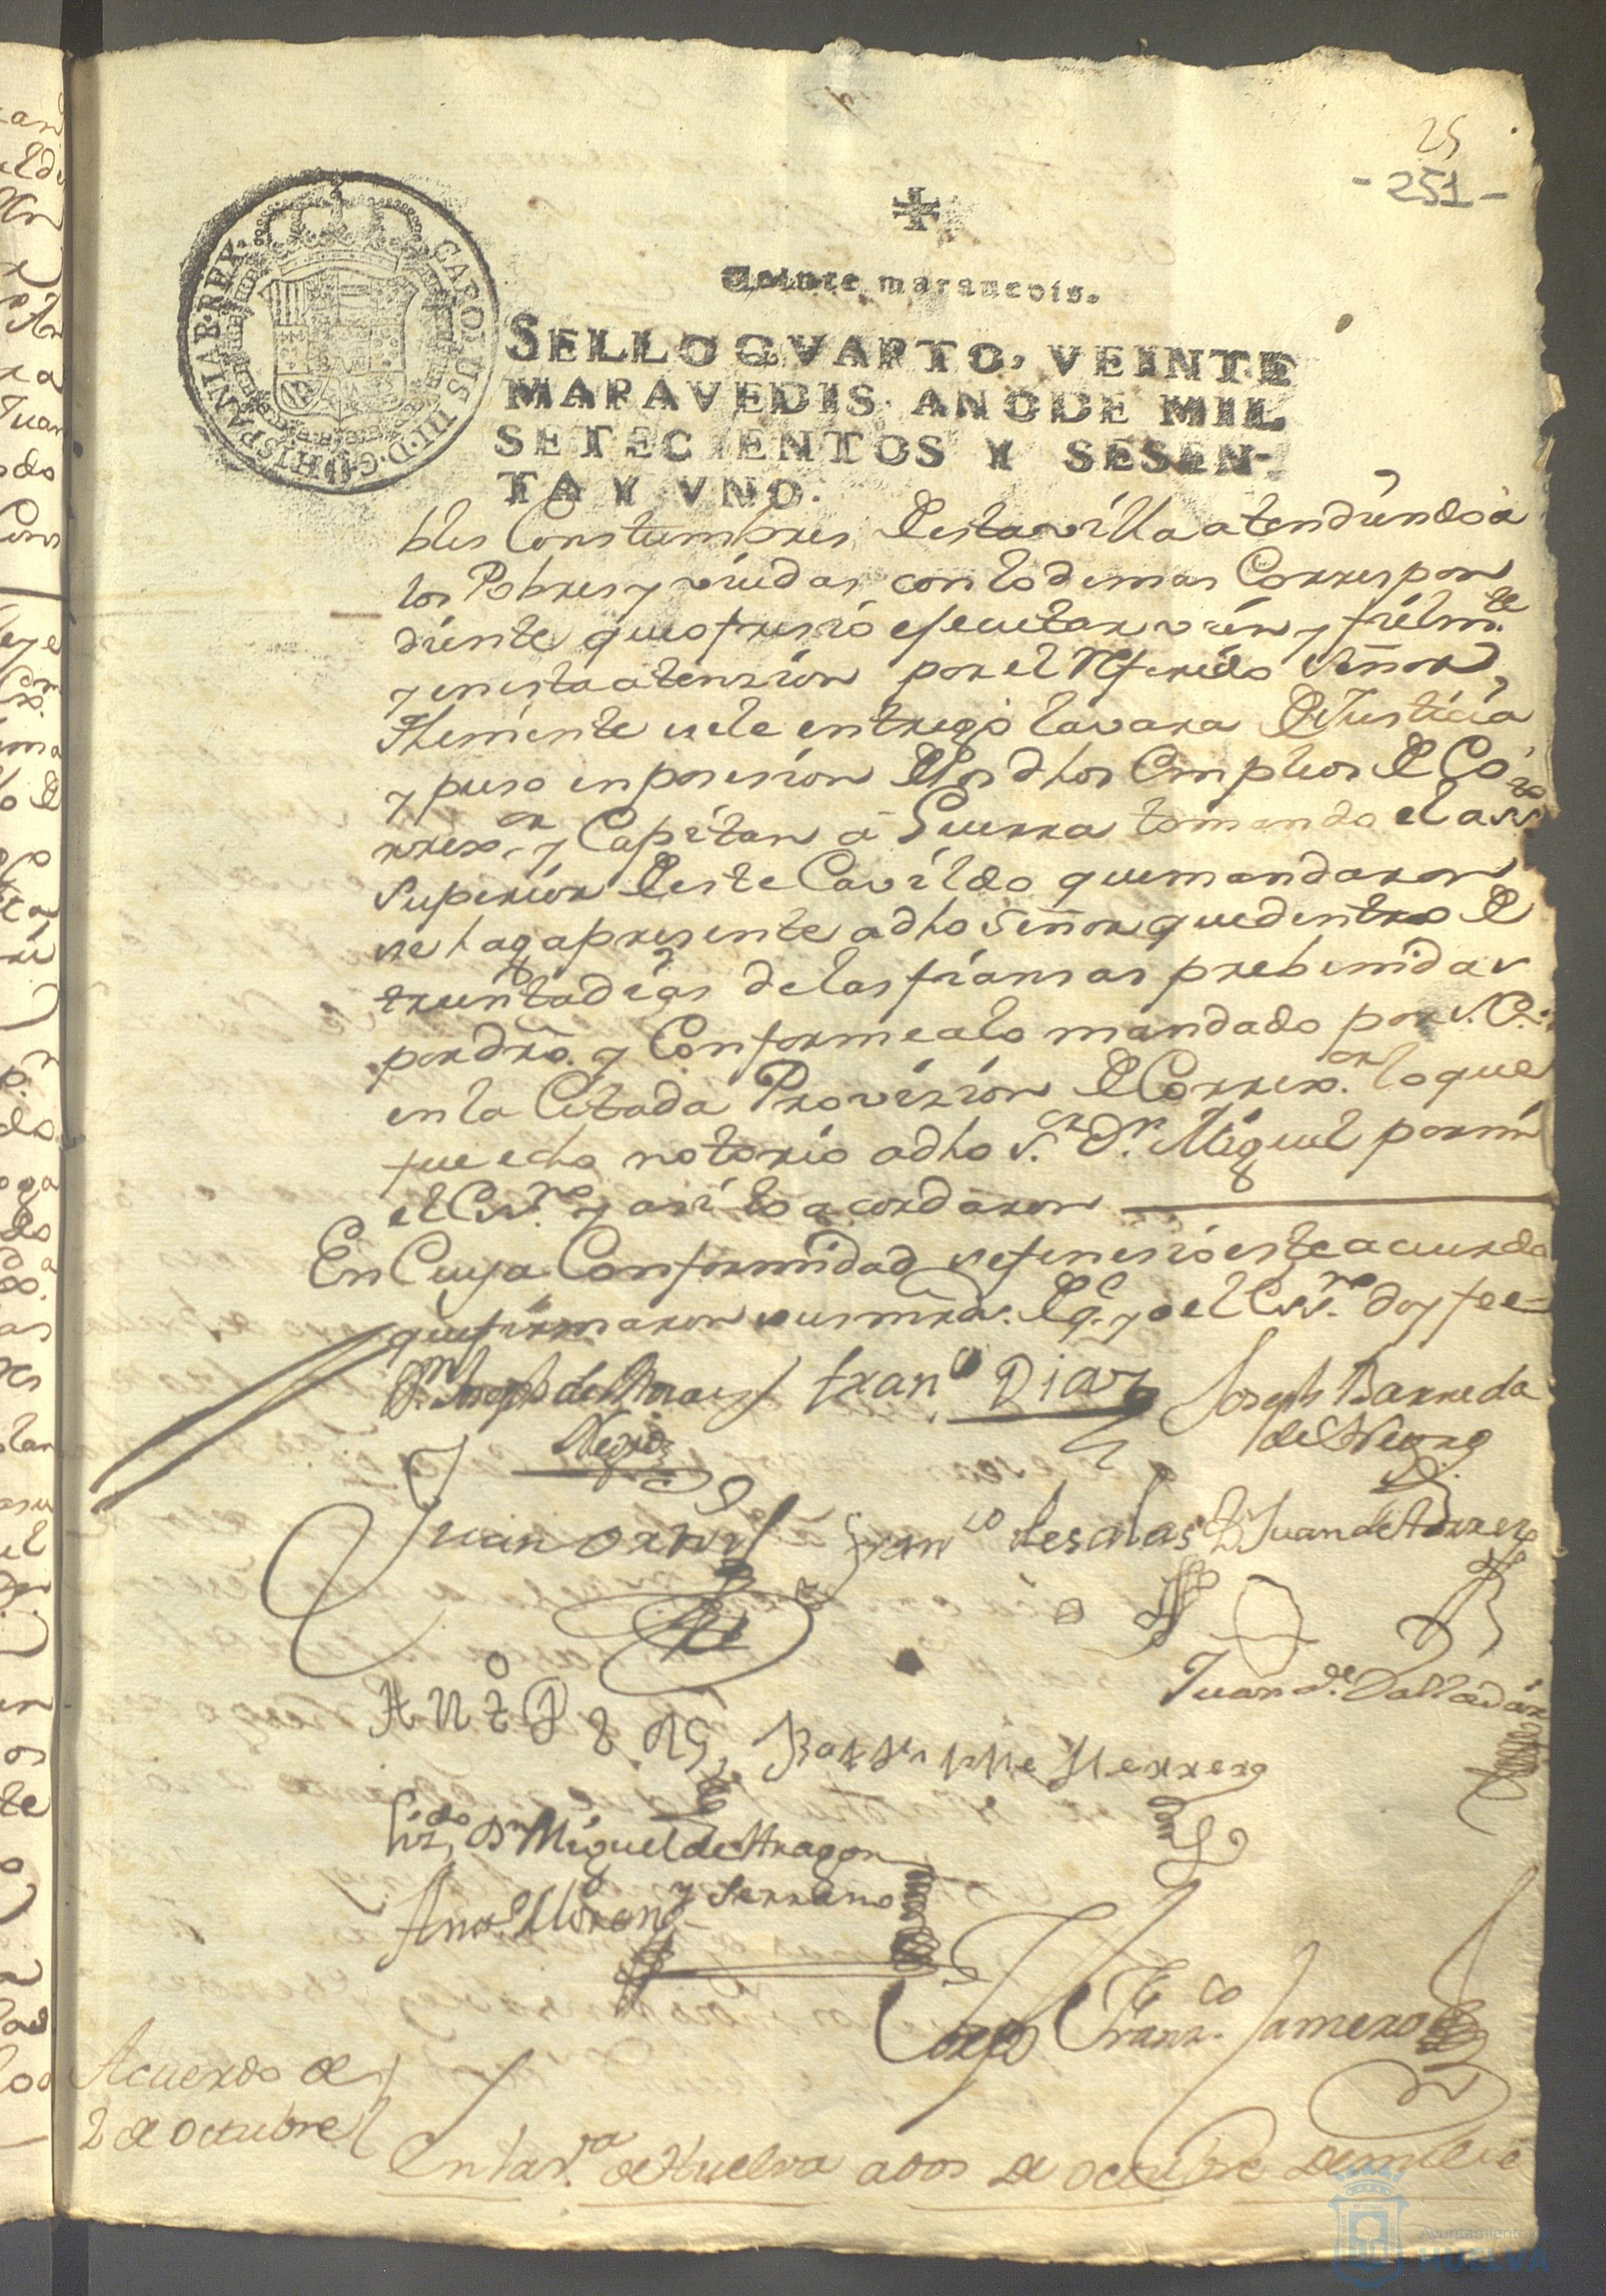 25
-251-
Veinte marauedis.
SELLO QVARTO, VEINTE
MARAVEDIS, AÑO DE MIL
SETECIENTOS Y SESEN-
TA Y VNO.
CAROLUS III. D. G. HISPANIAR. REX.
bles Constumbres destavilla atendiendo a
los Pobres y viudas con lo demas Correspon
diente que ofresio efecutar vien y fielmte.
y en esta atenzion por el Referido Señor
Theniente se le entrego la vara de Justicia
y puso en posesion de los dhos Empleos de Co
rrexor. y Capitan a Guerra tomando el assto
Superior deste Cavildo que mandaron
se haga presente a dho Señor que dentro de
treinta dias de las fiansas prebenidas
por dro. y Conforme a lo mandado por S. E.
en la Citada Provision de Correxor. lo que
fue echo notorio a dho Sor. Dn. Miguel por mi
el Essno. y asi lo acordaron
En Cuya Conformidad se fenesio este acuerdo
que firmaron sus mrds. de q. yo el Essno. doy fee=
Dn. Joseph de
Franco Diaz
Joseph Barreda
Juan Ortiz
Franco de salas
D. Juan de
Juan de
Herrero
Lizdo. Dn Miguel de Aragon
y Serrano
Anto. Moreno
Franco. Jamero
Acuerdo de
2 de octubre
En la va. de Huelva a dos de octubre de mill
Ayuntamiento de
HUELVA